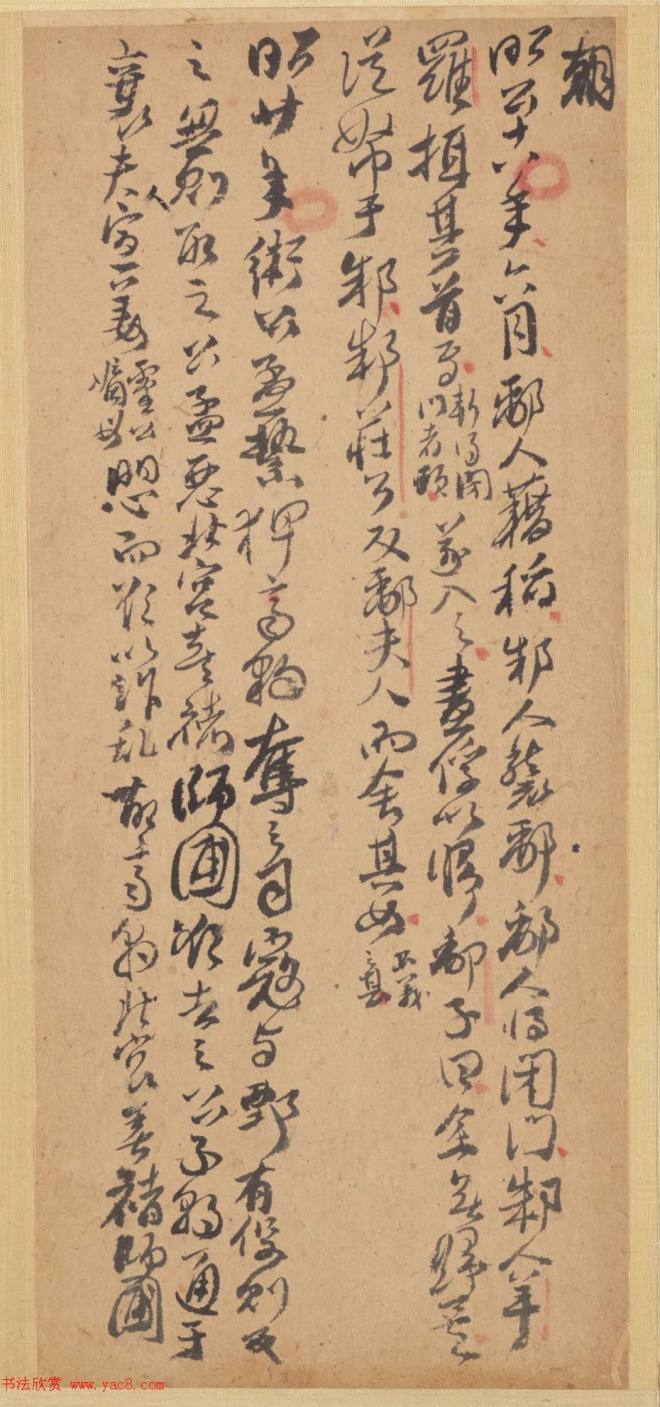 朝
昭公十八年六月鄅人藉稻邾人襲鄅鄅人将閉門邾人羊
羅攝其首焉斬得閉門者頭遂入之盡俘以歸鄅子曰余無歸矣
從帑于邾邾莊公反鄅夫人而舍其女
昭廿年衛公孟縶狎齊豹奪之司寇与鄄有役則反
之無則取之公孟惡北宮喜褚師圃欲去之公子朝通于
襄夫人宣姜靈公嫡母懼而欲以作乱故齊豹北宮喜褚師圃
书法欣赏 www.yac8.com